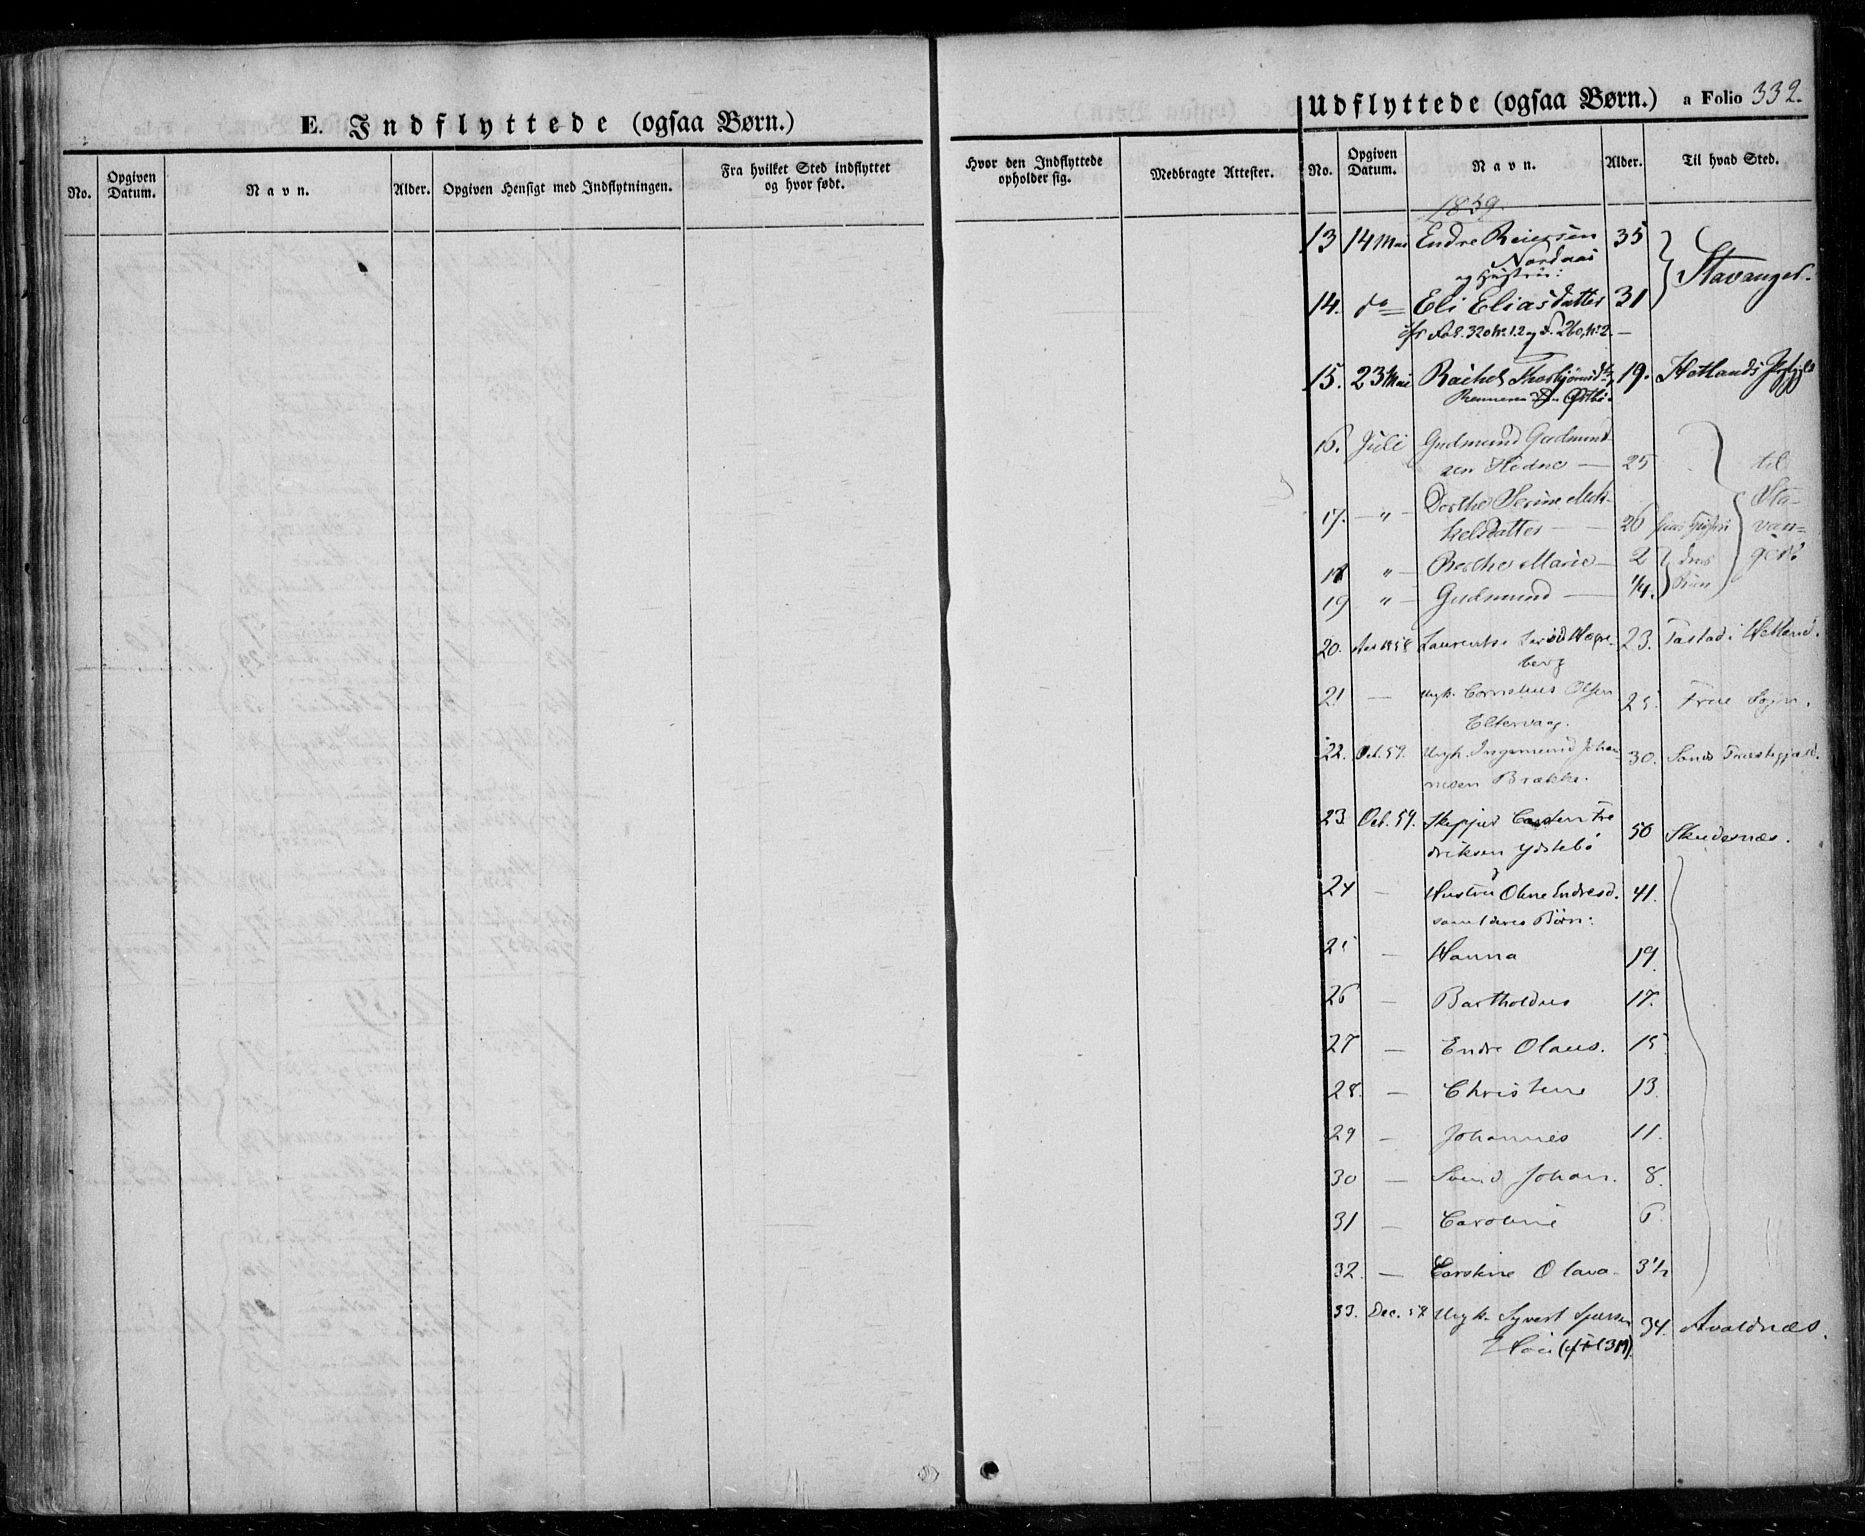 E. Indflyttede (ogsaa Børn.)
No.
Opgiven Datum.
Navn.
Alder.
Opgiven Hensigt med Indflytningen.
Fra hvilket Sted indflyttet
og hvor født.
Hvor den Indflyttede
opholder sig.
Medbragte Attester.
Udflyttede (ogsaa Børn.) a Folio 332.
No.
Opgiven Datum.
Navn.
Alder.
Til hvad Sted.
1859.
13 14 Mai Endre Reiersen 35
Nordnas
og Hustru:
Stavanger.
14. do Eli Eliasdatter 31
cfr Fol. 320 No. 12 og F. 260, No. 2.
15. 23 Mai Rachel Thorbjørnsd. 19. Hetlands
Rennesø
16. Juli Gudmund Gudmund-
sen Hodne — 25 til
17. " Dorthe Serine Mik-
kelsdatter — 26 hans Hustru
Sta-
van-
ger.
18 " Berthe Marie — 2
19 " Gudmund — 1/4.
20. 1858 Laurentse 23. Tastad i Hetland.
berg
21 — Ungk. Cornelius Olsen 25. Frue Sogn.
Eltervaag.
22. Oct. 59. Ungk. Ingemund Johan-
nesen Brække. 30. Præstegjæld.
23 Oct. 59. Skipper Carsten Fre
driksen Ydstebø 50 Skudesnæs.
24 — Hustru Oline Endresd. 41.
samt deres Børn:
25 — Hanna 19.
26 — Bartholdus 17.
27 — Endre Olaus. 15
28. — Christine 13.
29 — Johannes 11.
30 — Svend Johan. 8.
31 — Caroline 6
32. — Carstine Olava. 3 1/2
33. Dec. Ungk. Syvert 34. Avaldnæs.